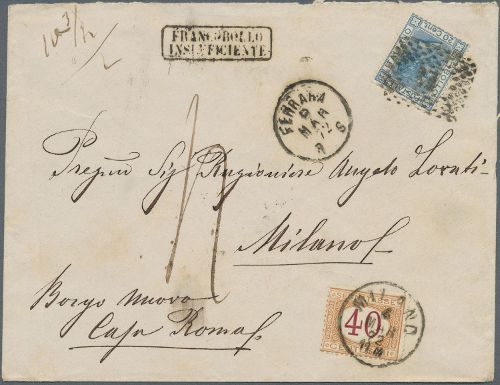 FRANCOBOLLO
INSUFFICIENTE
20 CENT
FERRARA
MAR
72
S
Pregmo Sig Ragioniere Angelo Lovati
Milano
Borgo Nuovo
Casa Roma
MILANO
MAR
72
40